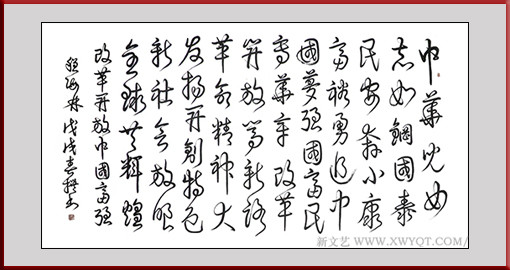 中華兒女
志如鋼國泰
民安奔小康
富裕勇追中
國夢强國富民
寫華章改革
开放新路
革命精神大
发揚开創特色
新社會放眼
全球共輝煌
改革开放中國富强
海林戊戌春撰书
新文艺 WWW.XWYQT.COM/